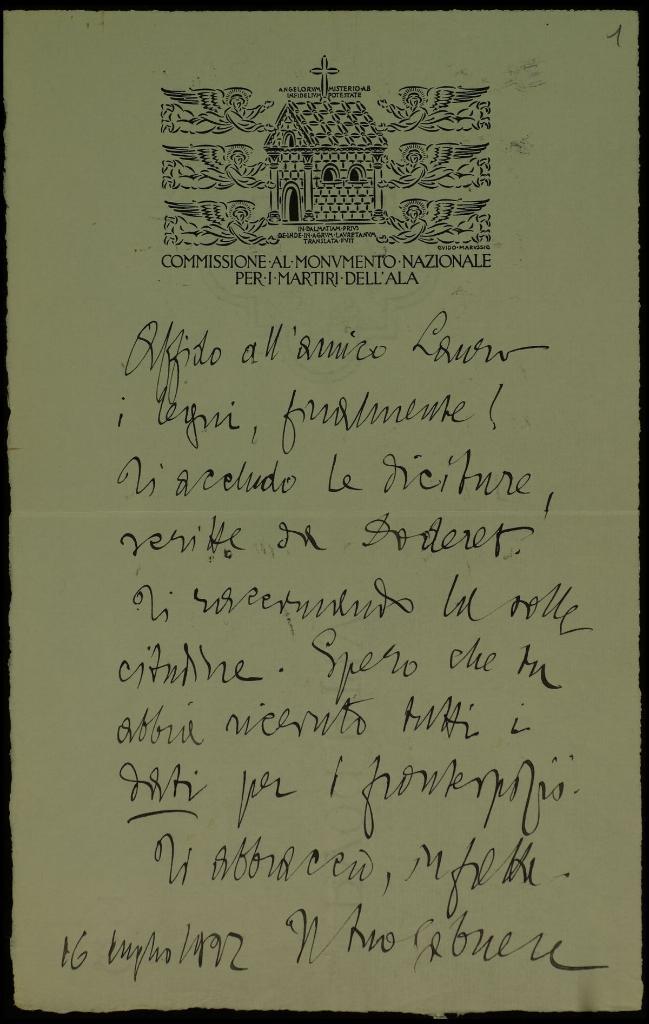 1
ANGELORVM MISTERIO·AB
INFIDELIVM POTESTATE
IN·DALMATIAM·PRIVS
DEINDE·IN·AGRVM·LAVRETANVM
TRANSLATA·FVIT
GVIDO·MARVSSIG
COMMISSIONE·AL·MONVMENTO·NAZIONALE
PER·I·MARTIRI·DELL'ALA
Affido all'amico Lauro
i legni, finalmente!
Ti accludo le diciture,
scritte da Doderet.
Ti raccomando la solle
citudine. Spero che tu
abbia ricevuto tutti i
dati per i frontespizii.
Ti abbraccio, in fretta.
16 luglio Il tuo Gabriele